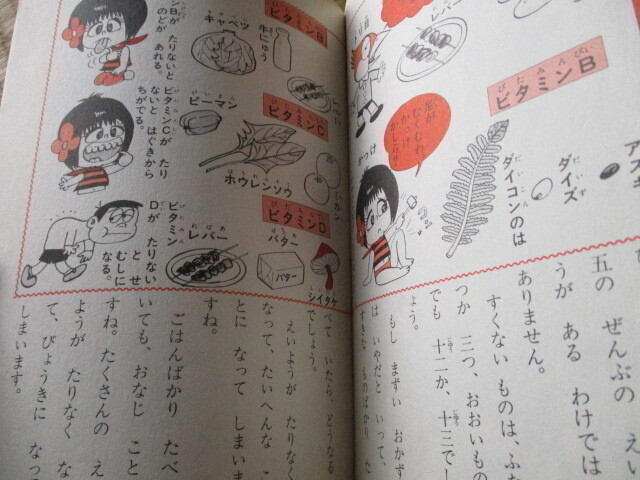 ビタミンB
アズキ
ダイズ
ダイコンのは
レバー
かっけ
足が
むくむわ。
かっけ
かしらね。
五の ぜんぶの え
うが ある わけでは
ありません。
すくない ものは、ふた
つか 三つ、おおいもの
でも 十二か、十三でし
ょう。
もし まずい おかず
は いやだと いって、
すきな ものばかり た
ビタミンB
キャベツ
牛にゅう
レバー
ンBが
たりないと
のどが
あれる。
ビタミンC
ピーマン
ホウレンソウ
ミカン
ビタミンCが たり
ないと はぐきから
ちがでる。
ビタミンD
レバー
バター
バター
シイタケ
ビタミン
Dが たりない
と せ
むしに
なる。
べて いたら、どうなる
でしょう。
えいようが たりなく
なって、たいへんな こ
とに なって しまいま
すね。
ごはんばかり たべ
いても、おなじ こと
すね。たくさんの え
ようが たりなく な
て、びょうきに なっ
しまいます。